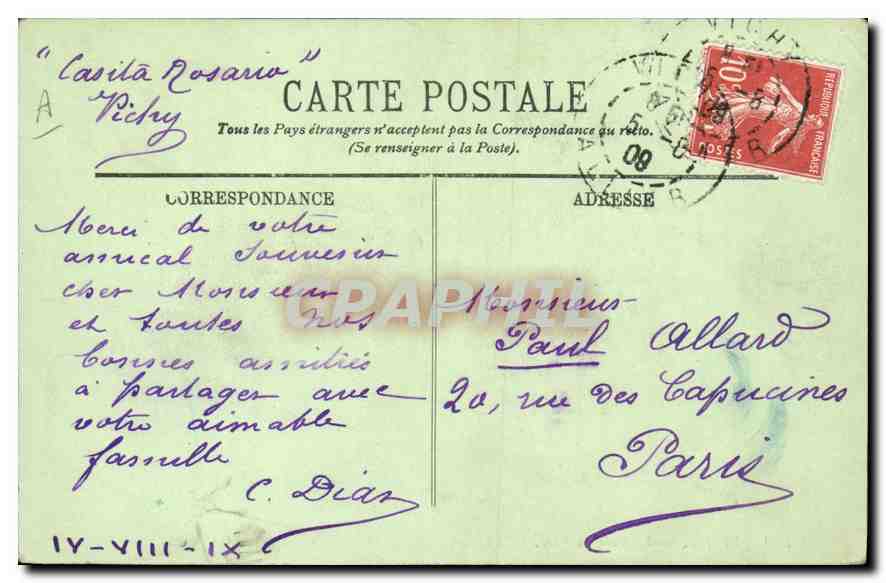 "Casita Rosario"
Vichy
A
CARTE POSTALE
Tous les Pays étrangers n'acceptent pas la Correspondance au recto.
(Se renseigner à la Poste).
VICHY
08
ALLIER
10c
REPUBLIQUE FRANÇAISE
POSTES
CORRESPONDANCE
Merci de votre
amical Souvenir
cher Monsieur
et toutes nos
bonnes amitiés
à partager avec
votre aimable
famille
C. Diaz
IV-VIII-IX
ADRESSE
Monsieur
Paul Allard
20, rue des Capucines
Paris
CPAPHIL